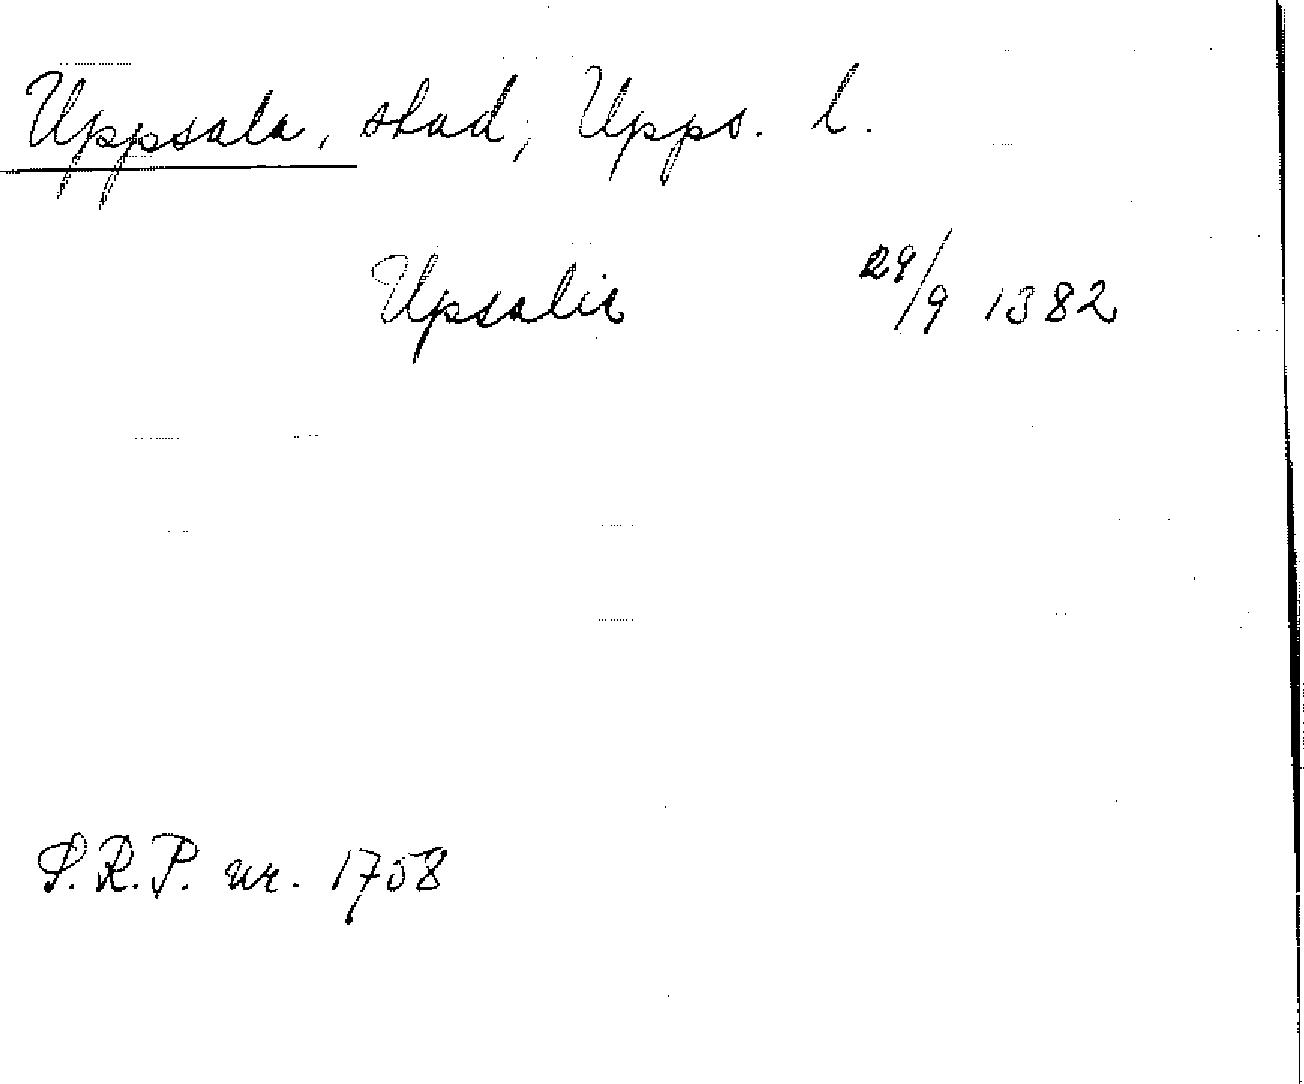 Uppsala, stad, Upps. l.
Upsalie 29/9 1382
S.R.P. nr. 1758